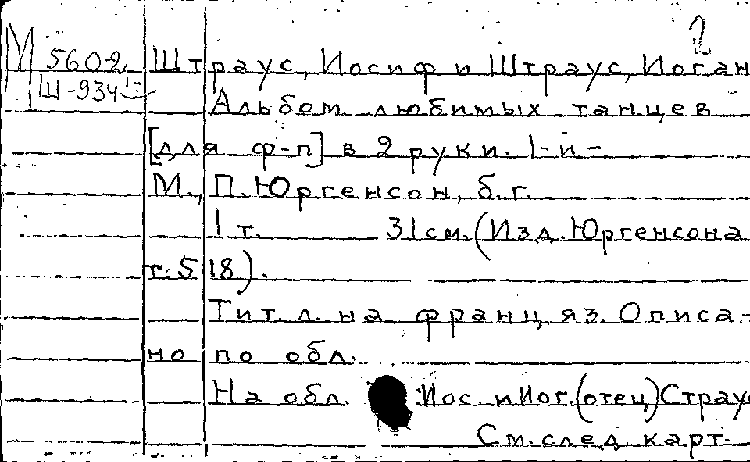 2
М 5609 Штраус, Иосиф и Штраус, Иоган
Ш-934 Альбом любимых танцев
[для ф-п] в 2 руки. 1-й-
М., П. Юргенсон, б. г.
1 т. 31 см. (Изд. Юргенсона
т. 518).
Тит. л. на франц яз. Описа-
но по обл.
На обл. Иос. и Иог. (отец) Страус
См. след карт.